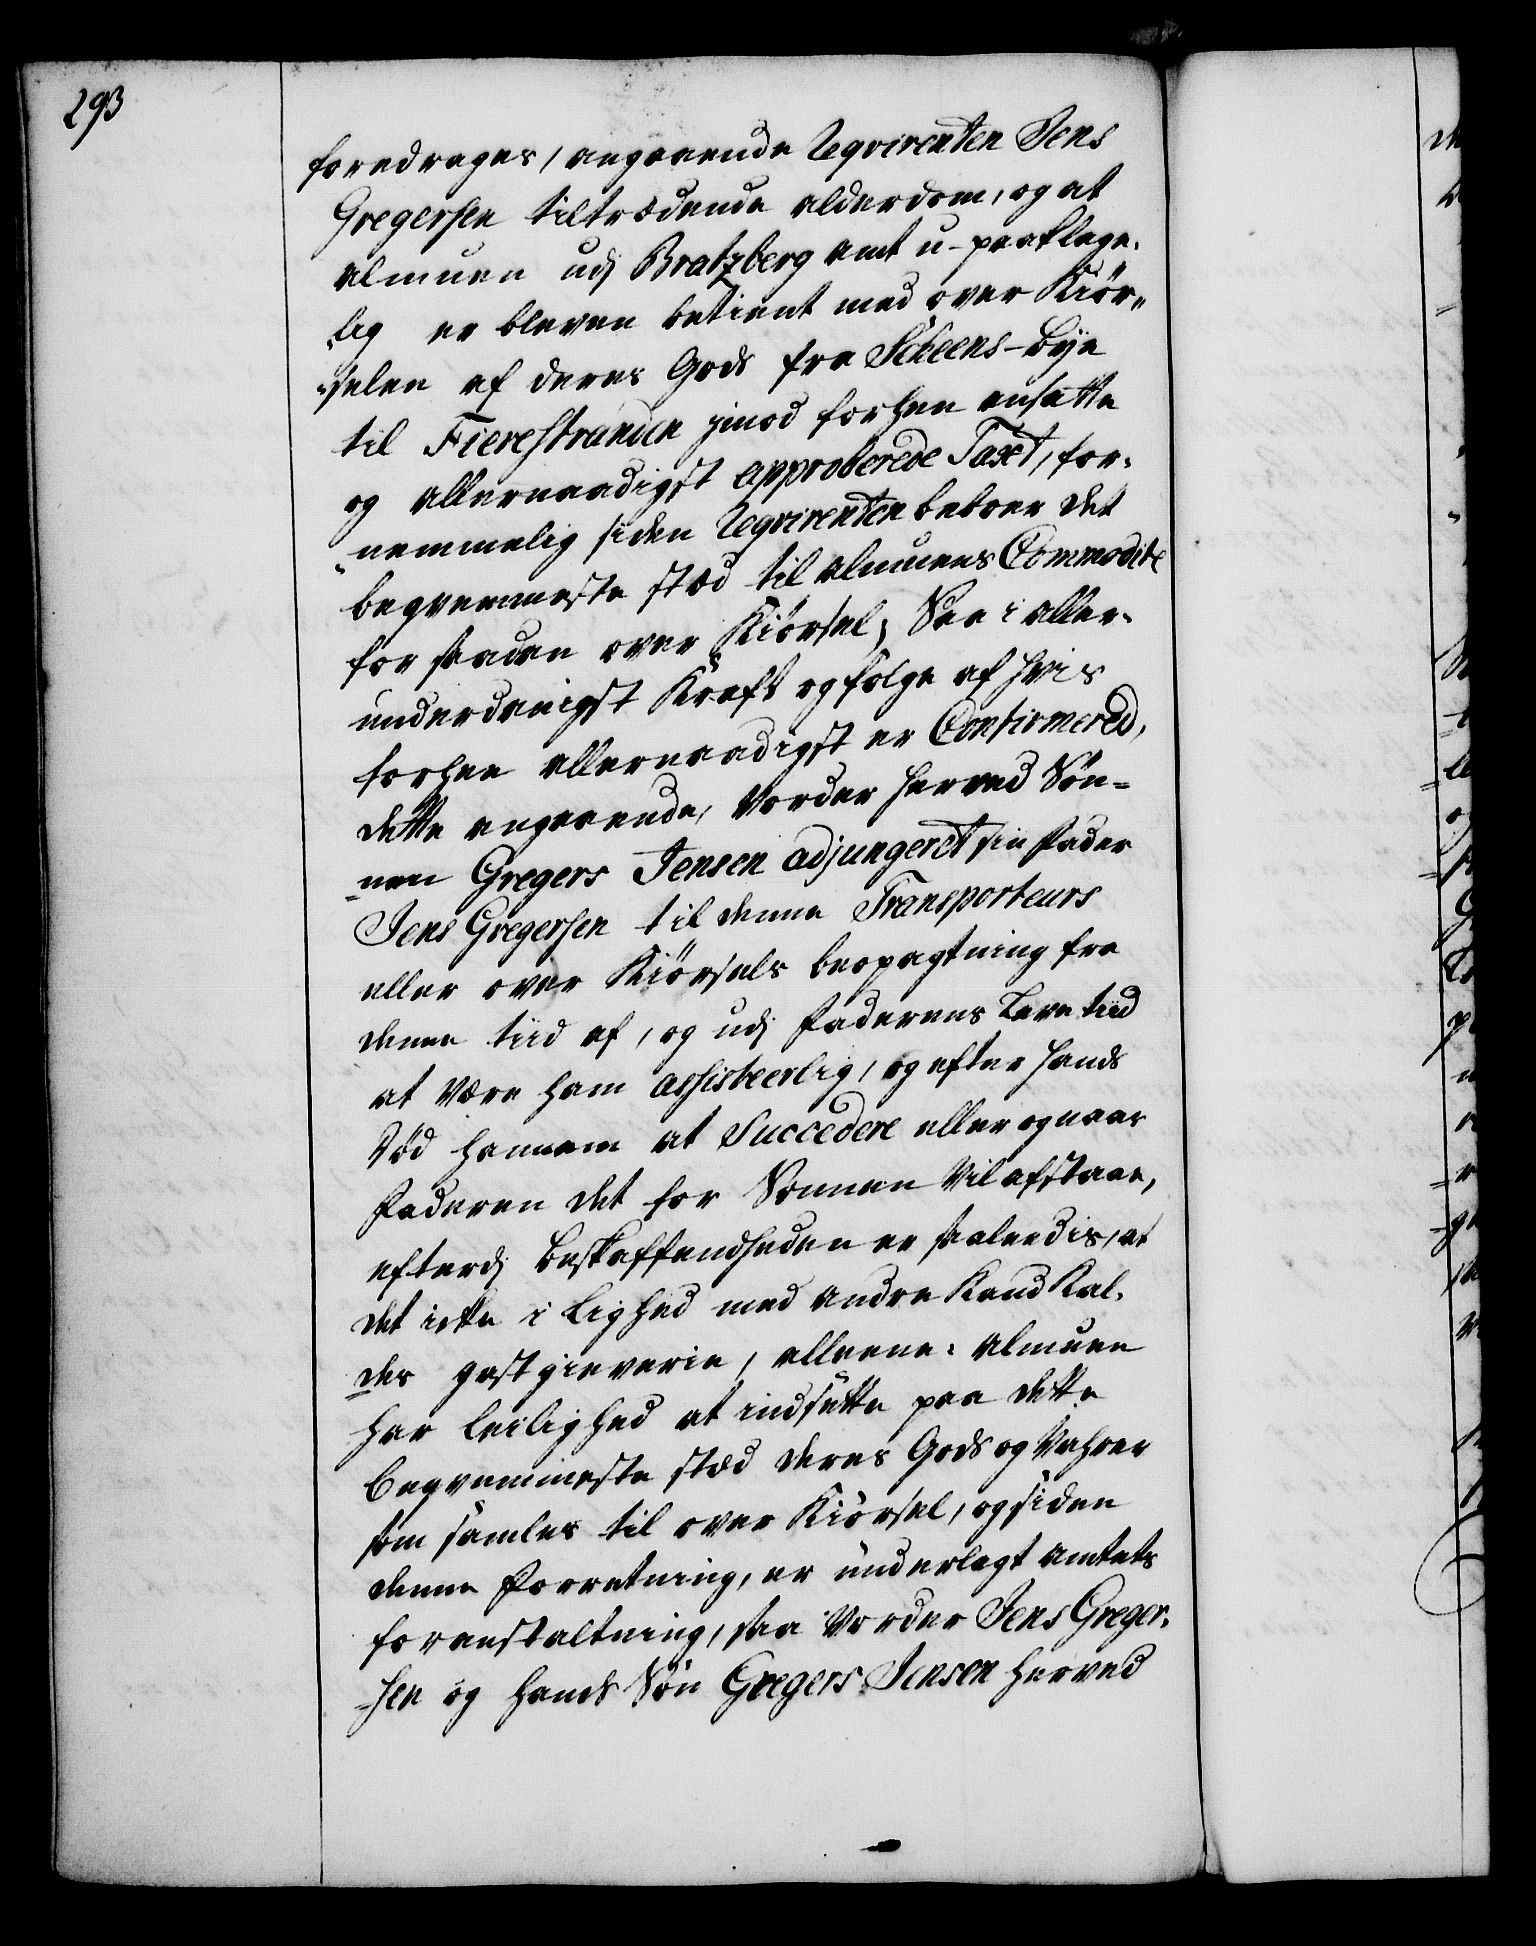 293
foredrages, angaaende Reqvirenten Jens
Gregersen tiltrædende alderdom, og at
almuen udj Bratzberg amt u-paaklage-
lig er bleven betient med over Kiör-
selen af deres Gods fra Scheens-Bye
til Fierestranden jmod forhen ansatte
og allernaadigst approberede Taxt, for-
nemmelig siden Reqvirenten beboer det
beqvemmeste stæd til almuens Commodite
for saadan over Kiörsel; Saa i aller-
underdanigst Kraft og følge af hvis
forhen allernaadigst er Confirmered,
dette angaaende, Vorder herved Søn-
nen Gregers Jensen adjungeret sin Fader
Jens Gregersen til denne Transporteurs
eller over Kiörsels beopagtning fra
denne tiid af, og udj Faderens Leve tiid
at være ham assisteerlig, og efter hands
Död hannem at Succedere eller og naar
Faderen det for Sønnen Vil afstaae,
efterdj beskaffendheden er saaledis, at
det icke i lighed med andre Kand Kal-
des gestgieverie, alleene almuen
har leilighed at indsætte paa dette
beqvemmeste stæd deres Gods og Vahrer
som samles til over Kiörsel, og siden
denne Forretning, er underlagt amtets
foranstaltning, saa Vorder Jens Greger-
sen og hands Søn Gregers Jensen herved